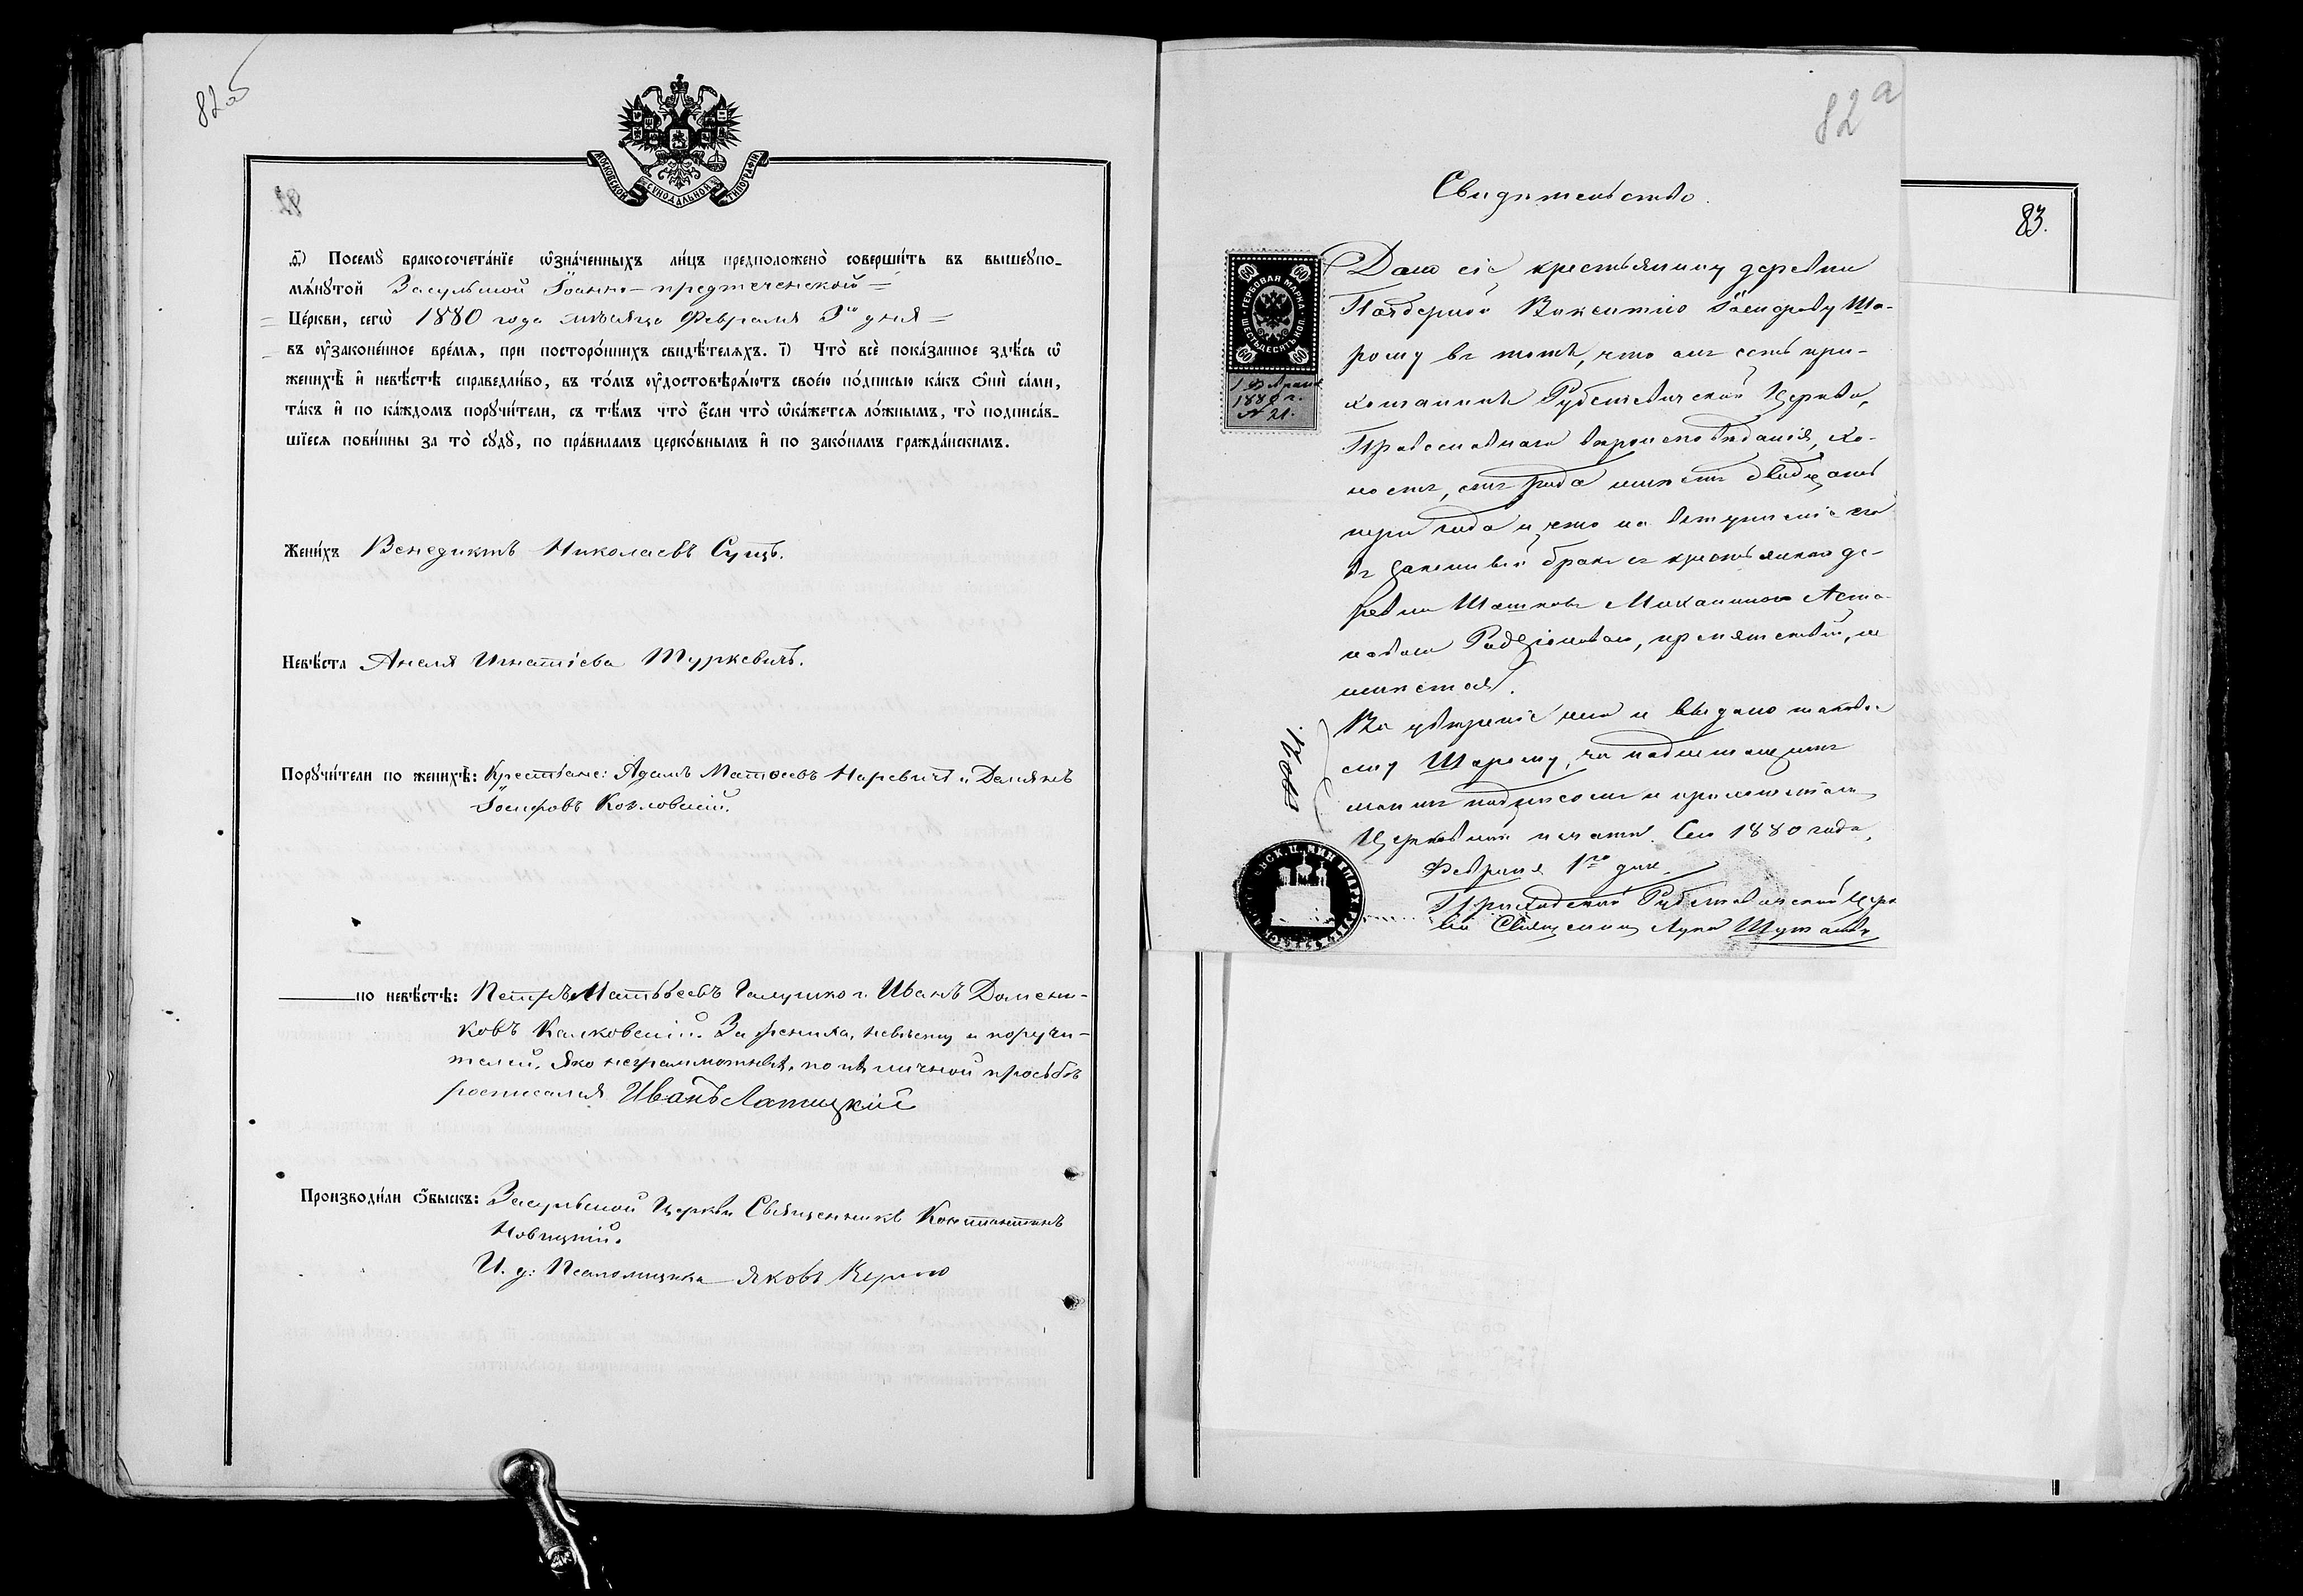 82об
82
МОСКОВСКОЙ СѴНОДАЛЬНОЙ ТИПОГРАФІИ
д҃) Посемꙋ̀ бракосочета́нїе ѡ҆зна́ченныхъ ли́цъ предположено̀ соверши́ть въ вышеꙋпо-
мѧ́нꙋтой Засульской Іоанно-предтеченской =
= Це́ркви, сегѡ̀ 1880 года мѣсяца Февраля 3го дня =
въ ᲂу҆зако́ненное вре́мѧ, при посторо́ннихъ свидѣ́телѧхъ. і҃) Что̀ всѐ пока́занное здѣ́сь ѡ҆
женихѣ̀ и҆ невѣ́стѣ справедли́во, въ то́мъ ᲂу҆достовѣрѧ́ютъ свое́ю по́дписью ка́къ ѻ҆нѝ са́ми,
та́къ и҆ по ка́ждомъ порꙋчи́тели, съ тѣ́мъ что̀ є҆́сли что̀ ѡ҆ка́жетсѧ ло́жнымъ, то̀ подписа́в-
шїесѧ пови́нны за то̀ сꙋдꙋ̀, по пра́виламъ церко́внымъ и҆ по зако́намъ гражда́нскимъ.
Жени́хъ Венедиктъ Николаевъ Супъ.
Невѣ́ста Анеля Игнатіева Туркевичъ.
Порꙋчи́тели по женихѣ̀: Крестьяне: Адамъ Матвеевъ Наревичъ и Демянъ
Іосифовъ Козловскій.
по невѣ́стѣ: Петръ Матвѣевъ Галушко и Иванъ Домени-
ковъ Калковскій. За жениха, невѣсту и поручи-
телей, яко неграмотныхъ, по ихъ личной просьбѣ
росписался Иванъ Латицкій
Производи́ли ѻ҆́быскъ: Засульской Церкви Священникъ Константинъ
Новицкій.
И. д: Псаломщика Яковъ
82 а
Свидѣтельство.
83.
ГЕРБОВАЯ МАРКА ШЕСТЬДЕСЯТЪ КОП.
60 60 60 60
1 Февраля
1880 г.
№ 21.
Дано сіе крестьянину деревни
Викентію Іосифову Ша-
рому въ томъ, что онъ есть при-
хожанинъ Рубежевичской Церкви,
Православнаго вѣроисповѣданія, хо-
лостъ, отъ рода имѣетъ двадцать
три года и что на вступленіе его
въ законный бракъ съ крестьянкою де-
ревни Матковъ Михалиною Аста-
повою Радзіоновою, препятствій не
имѣется.
Въ увѣреніе чего и выдано таково-
ему Шарому, за надлежащимъ
моимъ подписомъ и приложеніемъ
Церковной печати. Сего 1880 года,
Февраля 1го дня.
Приходской Рубежевичской Церк
ви Священникъ Лука